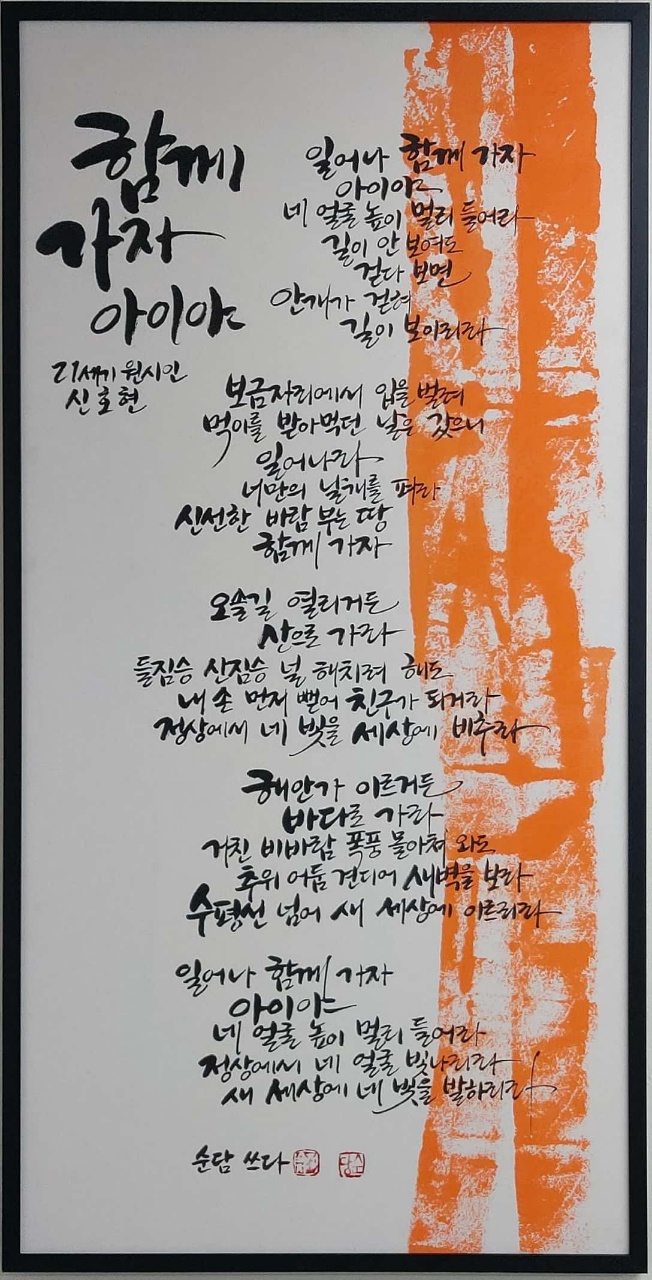 함께
가자
아이야
21세기 원시인
신호현
일어나 함께 가자
아이야
네 얼굴 높이 멀리 들어라
길이 안 보여도
걷다 보면
안개가 걷혀
길이 보이리라
보금자리에서 입을 벌려
먹이를 받아먹던 날은 갔으니
일어나라
너만의 날개를 펴라
신선한 바람 부는 땅
함께 가자
오솔길 열리거든
산으로 가라
들짐승 산짐승 널 해치려 해도
내 손 먼저 뻗어 친구가 되거라
정상에서 네 빛을 세상에 비추라
해안가 이르거든
바다로 가라
거친 비바람 폭풍 몰아쳐 와도
추위 어둠 견디어 새벽을 보라
수평선 넘어 새 세상에 이르리라
일어나 함께 가자
아이야
네 얼굴 높이 멀리 들어라
정상에서 네 얼굴 빛나리라
새 세상에 네 빛을 발하리라
순담 쓰다